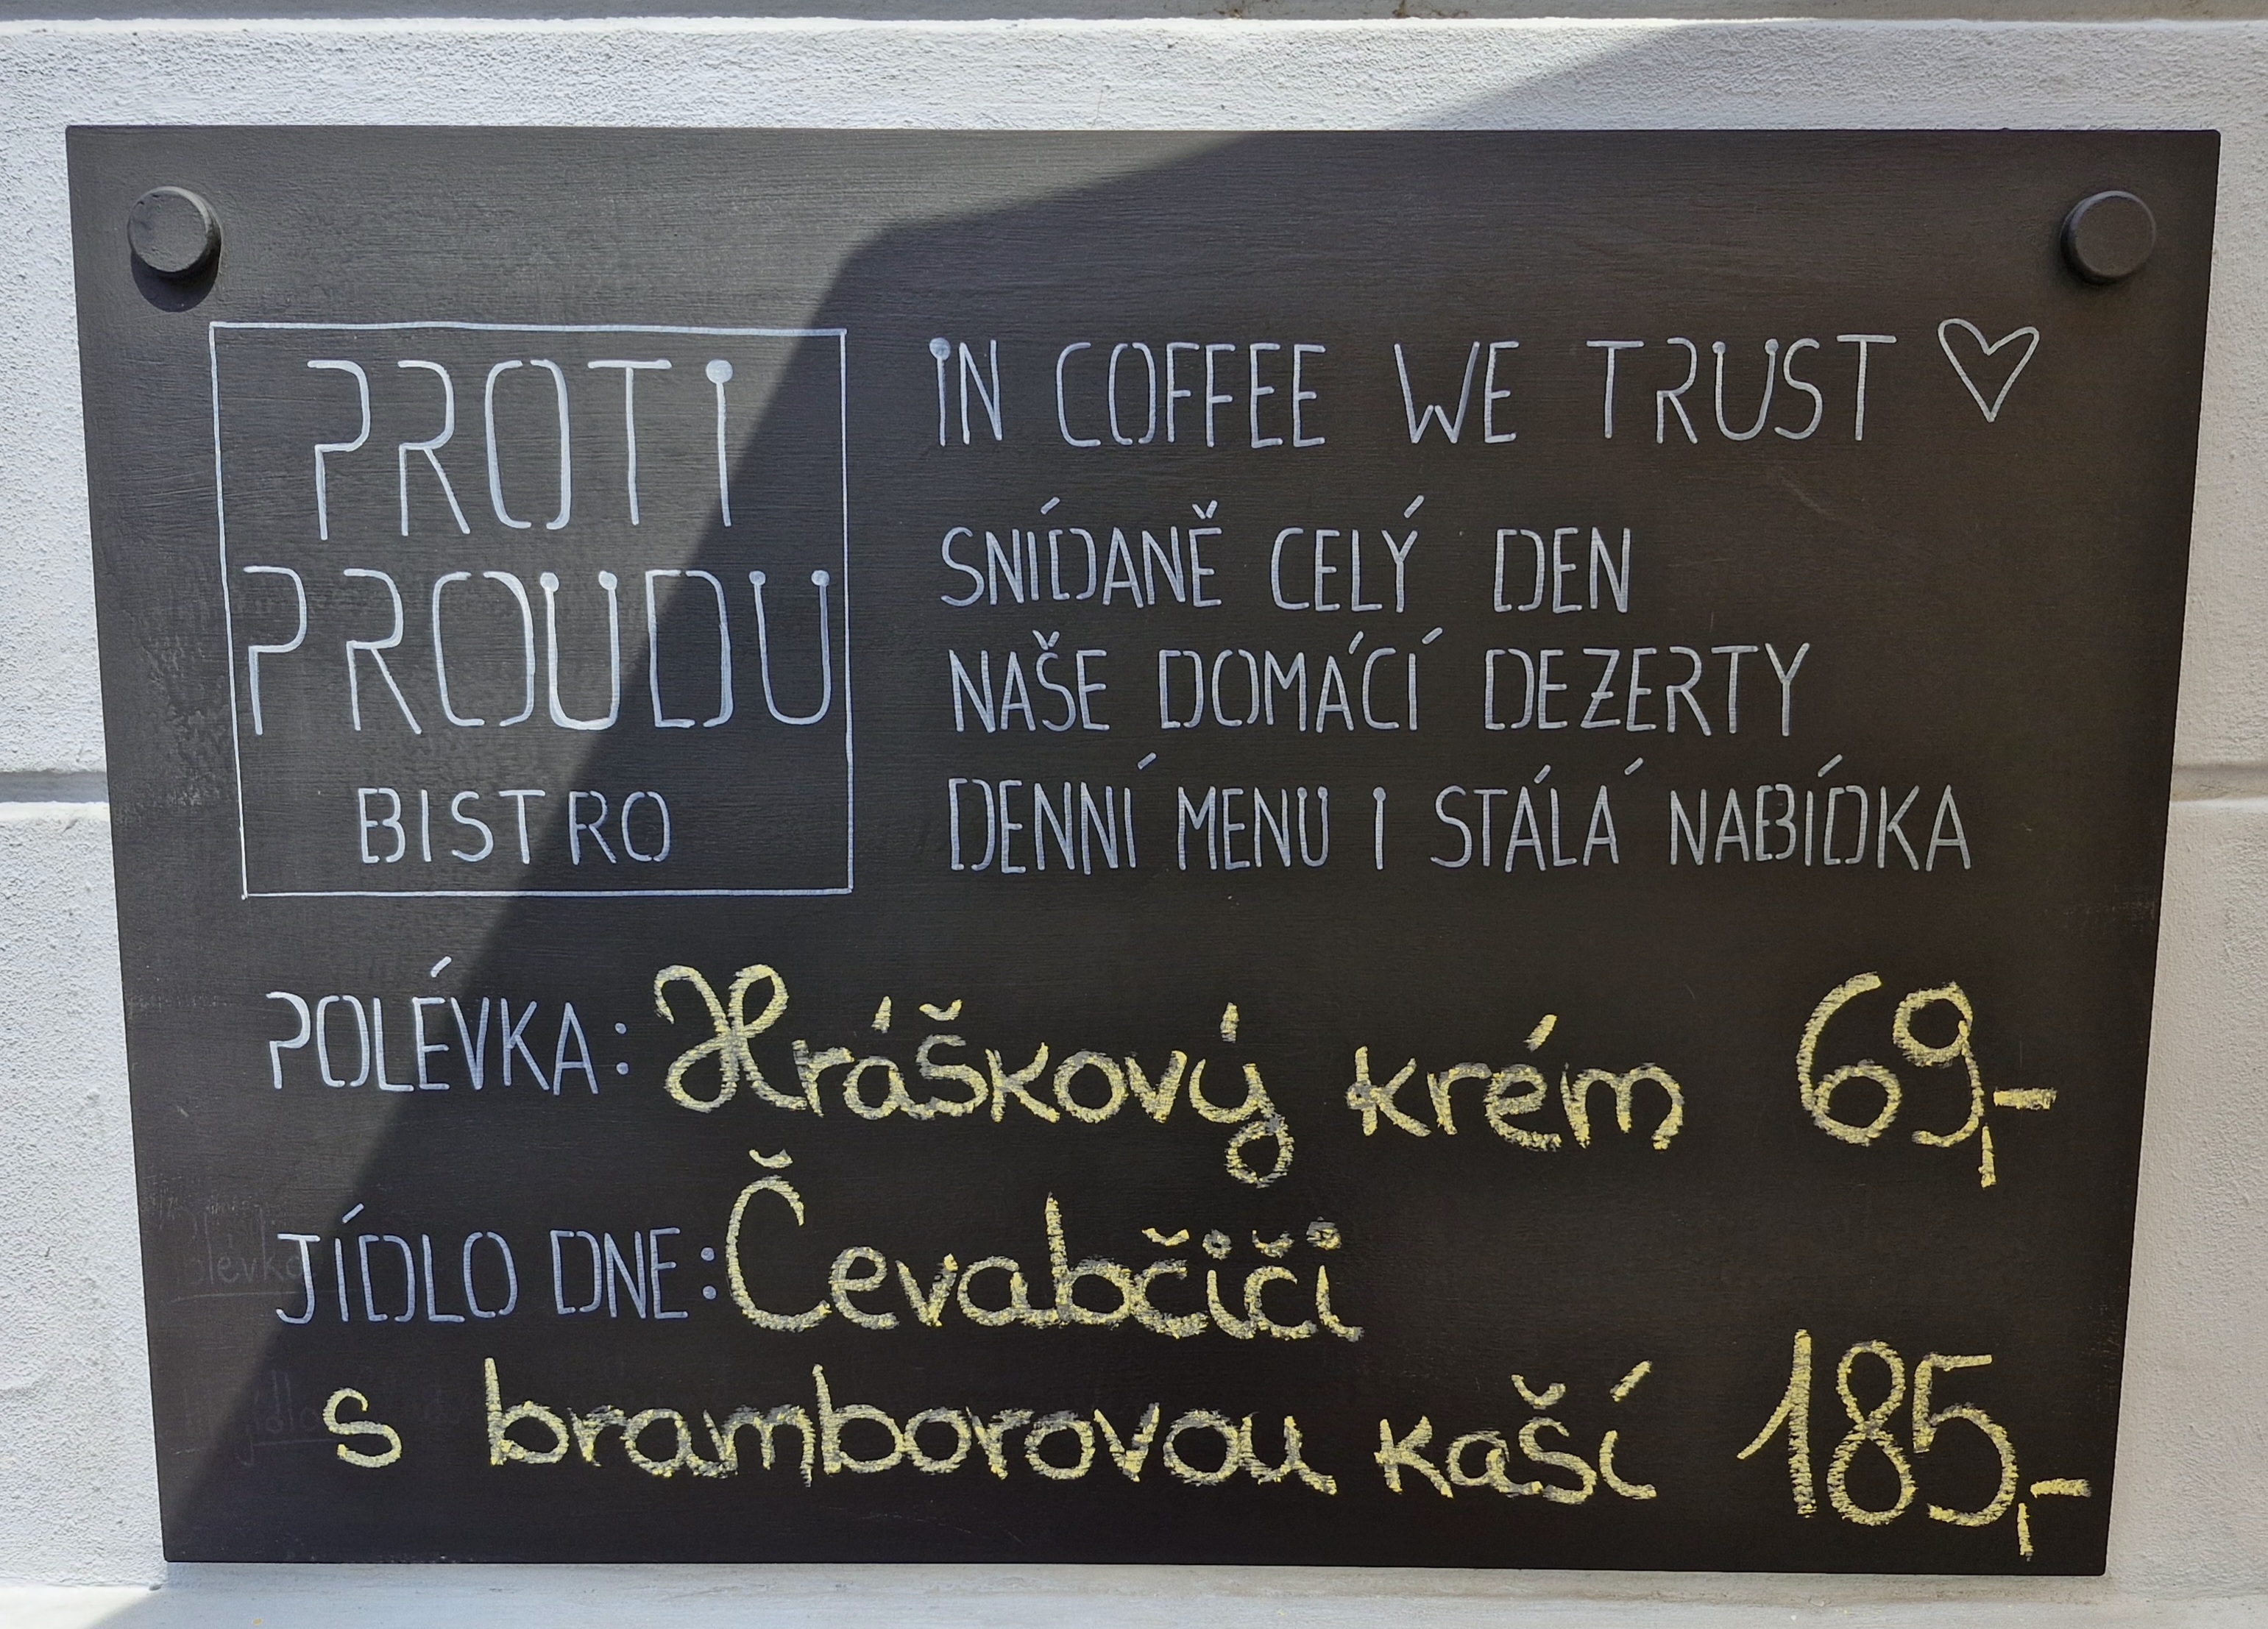 PROTI
PROUDU
BISTRO
IN COFFEE WE TRUST
SNÍDANĚ CELÝ DEN
NAŠE DOMÁCÍ DEZERTY
DENNÍ MENU I STÁLÁ NABÍDKA
POLÉVKA: Hráškový krém 69,-
JÍDLO DNE: Čevabčiči
s bramborovou kaší 185,-